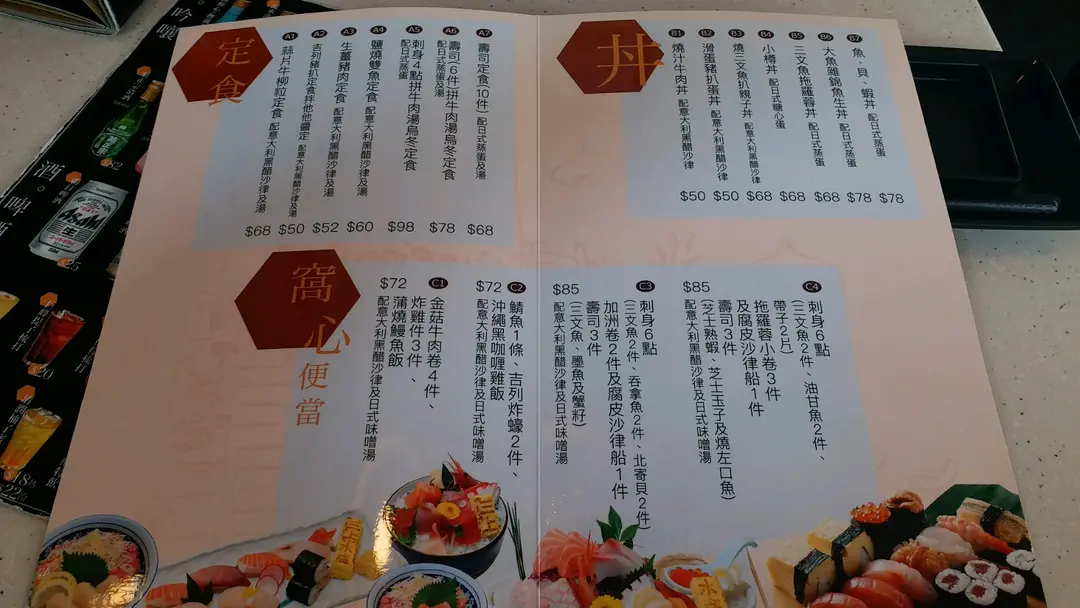 定食
A1 蒜片牛柳粒定食 配意大利黑醋沙律及湯 $68
A2 吉列豬扒定食拌他他醬定 配意大利黑醋沙律及湯 $50
A3 生薑豬肉定食 配意大利黑醋沙律及湯 $52
A4 鹽燒雙魚定食 配意大利黑醋沙律及湯 $60
A5 刺身4點拼牛肉湯烏冬定食
配日式蒸蛋 $98
A6 壽司(6件)拼牛肉湯烏冬定食
配日式蒸蛋及湯 $78
A7 壽司定食(10件) 配日式蒸蛋及湯 $68
丼
B1 燒汁牛肉丼 配意大利黑醋沙律 $50
B2 滑蛋豬扒蛋丼 配意大利黑醋沙律 $50
B3 燒三文魚扒親子丼 配意大利黑醋沙律 $68
B4 小樽丼 配日式糖心蛋 $68
B5 三文魚拖羅蓉丼 配日式蒸蛋 $68
B6 大魚雜錦魚生丼 配日式蒸蛋 $78
B7 魚、貝、蝦丼 配日式蒸蛋 $78
窩心便當
C1 金菇牛肉卷4件、
炸雞件3件、
蒲燒鰻魚飯
配意大利黑醋沙律及日式味噌湯
$72
C2 鯖魚1條、吉列炸蠔2件、
沖繩黑咖喱雞飯
配意大利黑醋沙律及日式味噌湯
$72
C3 刺身6點
(三文魚2件、吞拿魚2件、北寄貝2件)
加洲卷2件及腐皮沙律船1件
壽司3件
(三文魚、墨魚及蟹籽)
配意大利黑醋沙律及日式味噌湯
$85
C4 刺身6點
(三文魚2件、油甘魚2件、
帶子2片)
拖羅蓉小卷3件
及腐皮沙律船1件
壽司3件
(芝士熟蝦、芝士玉子及燒左口魚)
配意大利黑醋沙律及日式味噌湯
$85
酒。啤酒
Asahi
生